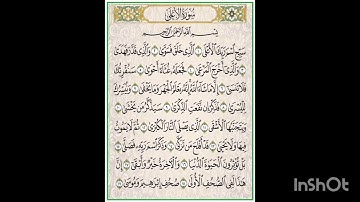 سورة الأعلى
بسم الله الرحمن الرحيم
سبح اسم ربك الأعلى ١ الذي خلق فسوى ٢ والذي قدر فهدى
٣ والذي أخرج المرعى ٤ فجعله غثاء أحوى ٥ سنقرئك
فلا تنسى ٦ إلا ما شاء الله إنه يعلم الجهر وما يخفى ٧ ونيسرك
لليسرى ٨ فذكر إن نفعت الذكرى ٩ سيذكر من يخشى ١٠
ويتجنبها الأشقى ١١ الذي يصلى النار الكبرى ١٢ ثم لا يموت
فيها ولا يحيى ١٣ قد أفلح من تزكى ١٤ وذكر اسم ربه فصلى ١٥
بل تؤثرون الحيوة الدنيا ١٦ والآخرة خير وأبقى ١٧ إن
هذا لفي الصحف الأولى ١٨ صحف إبرهيم وموسى ١٩
InShOt